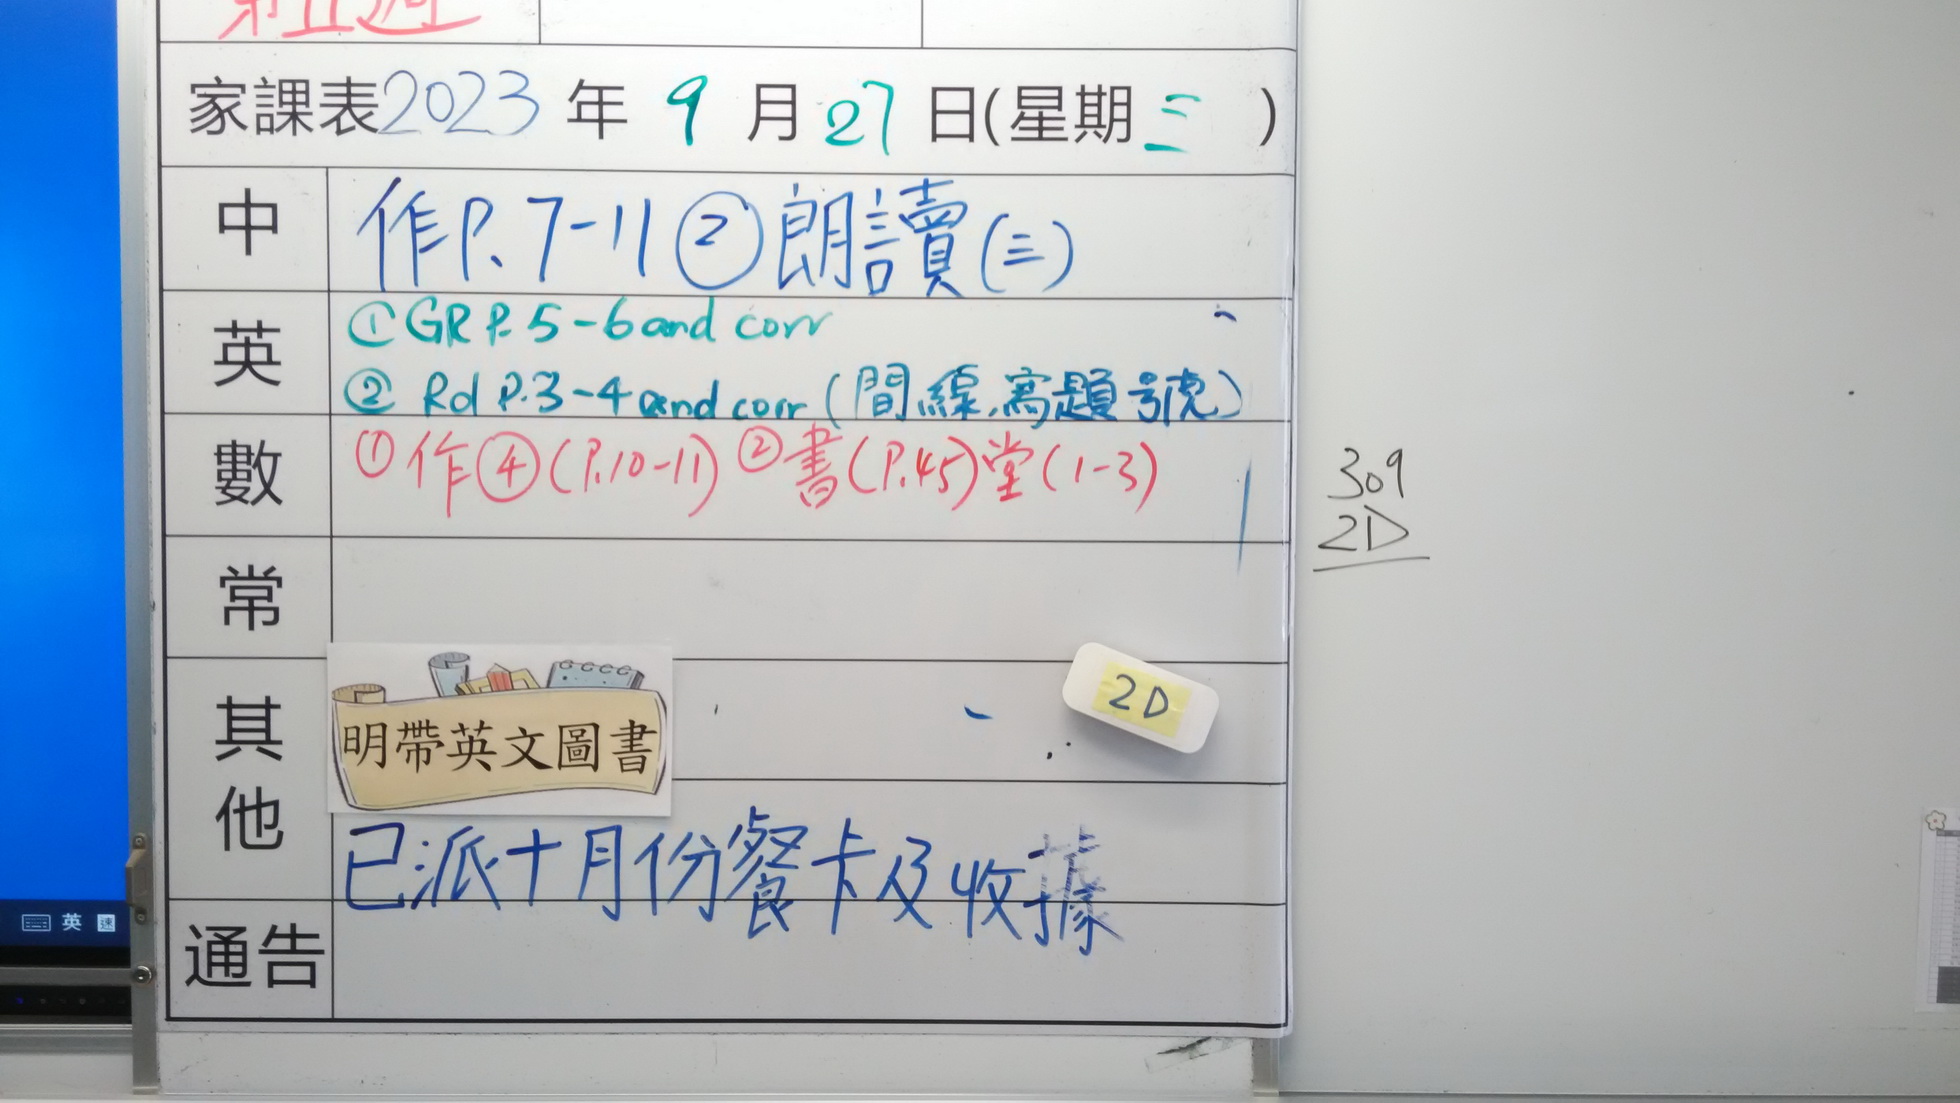 家課表2023年9月27日(星期三)
中 作P.7-11②朗讀(三)
英 ①GR P.5-6 and corr
② Rd P.3-4 and corr (間線,寫題號)
數 ①作④(P.10-11) ②書(P.45)堂(1-3)
309
2D
常
其他 明帶英文圖書
2D
已派十月份餐卡及收據
英 速
通告